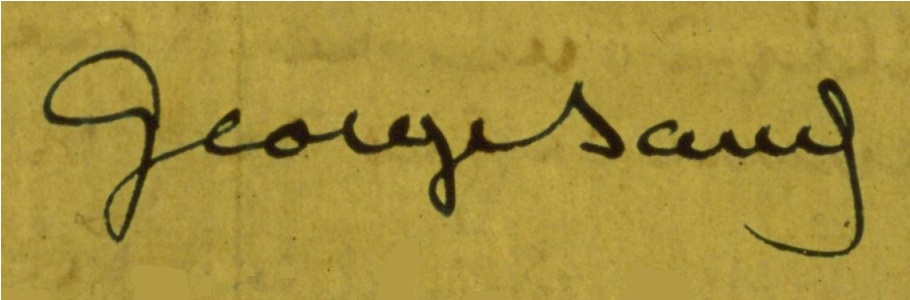 George Sand